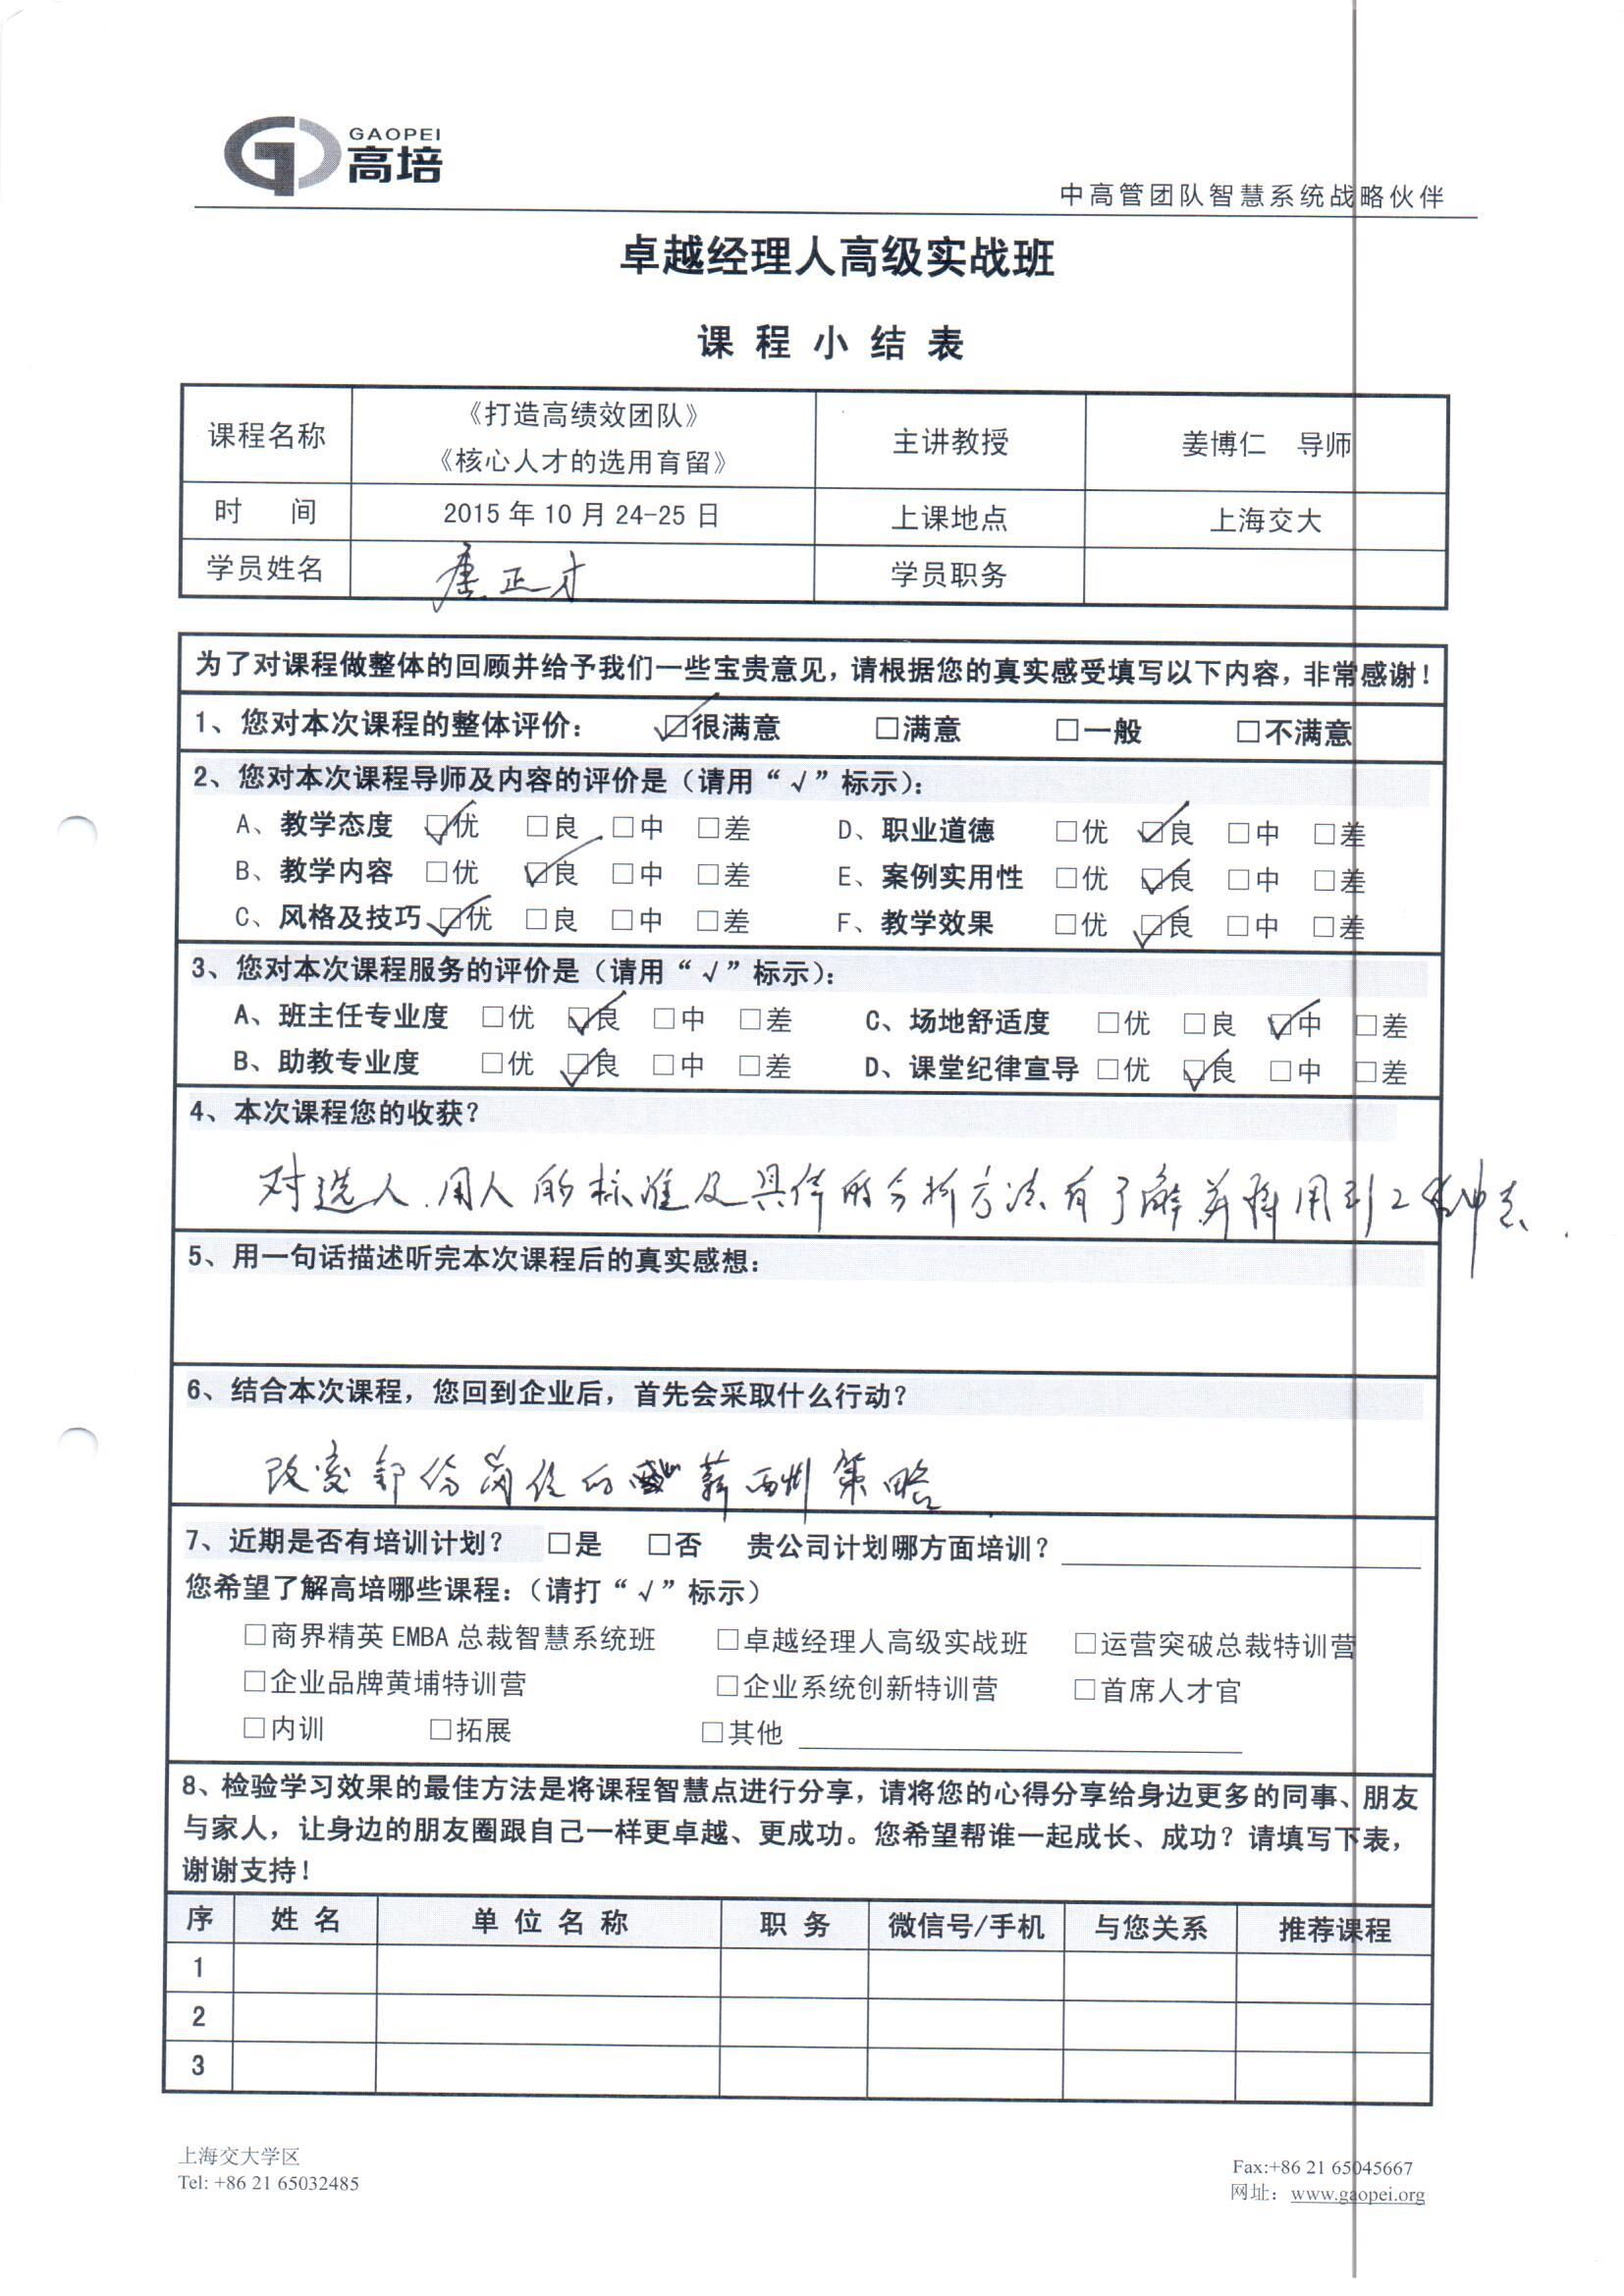 GAOPEI
高培
中高管团队智慧系统战略伙伴
卓越经理人高级实战班
课 程 小 结 表
课程名称 《打造高绩效团队》 《核心人才的选用育留》 主讲教授 姜博仁 导师
时 间 2015 年 10 月 24-25 日 上课地点 上海交大
学员姓名 唐正才 学员职务
为了对课程做整体的回顾并给予我们一些宝贵意见，请根据您的真实感受填写以下内容，非常感谢！
1、您对本次课程的整体评价： ☑很满意 □满意 □一般 □不满意
2、您对本次课程导师及内容的评价是（请用“√”标示）：
A、教学态度 ☑优 □良 □中 □差 D、职业道德 □优 ☑良 □中 □差
B、教学内容 □优 ☑良 □中 □差 E、案例实用性 □优 ☑良 □中 □差
C、风格及技巧 ☑优 □良 □中 □差 F、教学效果 □优 ☑良 □中 □差
3、您对本次课程服务的评价是（请用“√”标示）：
A、班主任专业度 □优 ☑良 □中 □差 C、场地舒适度 □优 □良 ☑中 □差
B、助教专业度 □优 ☑良 □中 □差 D、课堂纪律宣导 □优 ☑良 □中 □差
4、本次课程您的收获？
对选人.用人的标准及具体的分析方法有了解并将用到工作中去.
5、用一句话描述听完本次课程后的真实感想：
6、结合本次课程，您回到企业后，首先会采取什么行动？
改变部份岗位的薪酬策略.
7、近期是否有培训计划？ □是 □否 贵公司计划哪方面培训？
您希望了解高培哪些课程：（请打“√”标示）
□商界精英 EMBA 总裁智慧系统班 □卓越经理人高级实战班 □运营突破总裁特训营
□企业品牌黄埔特训营 □企业系统创新特训营 □首席人才官
□内训 □拓展 □其他
8、检验学习效果的最佳方法是将课程智慧点进行分享，请将您的心得分享给身边更多的同事、朋友
与家人，让身边的朋友圈跟自己一样更卓越、更成功。您希望帮谁一起成长、成功？请填写下表，
谢谢支持！
序 姓 名 单 位 名 称 职 务 微信号/手机 与您关系 推荐课程
1
2
3
上海交大学区
Tel: +86 21 65032485
Fax:+86 21 65045667
网址：www.gaopei.org